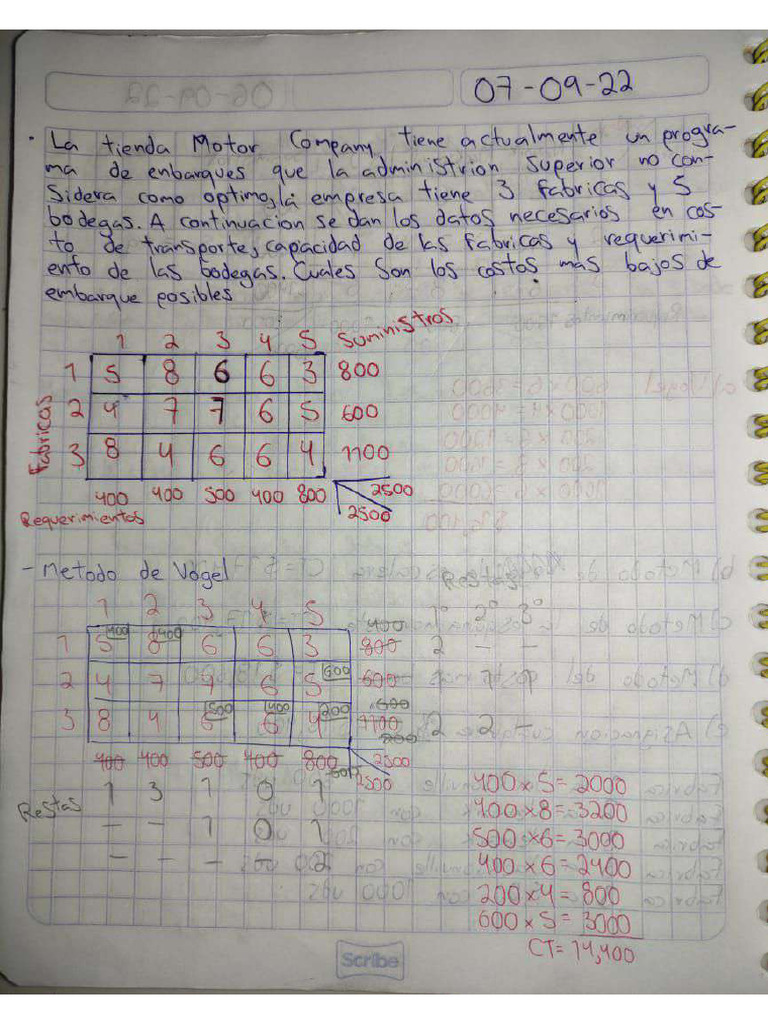 07-09-22
· La tienda Motor Company tiene actualmente un progra-
ma de enbarques que la administrion Superior no con-
Sidera como optimo, la empresa tiene 3 fabricas y 5
bodegas. A continuacion se dan los datos necesarios en cos-
to de transporte, capacidad de las fabricas y requerimi-
ento de las bodegas. Cuales Son los costos mas bajos de
embarque posibles
1 2 3 4 5 Suministros
Fabricas
1 5 8 6 6 3 800
2 4 7 7 6 5 600
3 8 4 6 6 4 1100
400 400 500 400 800 2500
Requerimientos 2500
- Metodo de Vogel
Restas
1 2 3 4 5 400 1° 2° 3°
1 5 400 8 400 6 6 3 800 2 - -
2 4 7 7 6 5 600 600 1 1
3 8 4 6 500 6 400 4 200 1100 2 2 -
400 400 500 400 800 2500
600 2500
Restas 1 3 1 0 1
- - 1 0 1
- - - - -
400 x 5 = 2000
400 x 8 = 3200
500 x 6 = 3000
400 x 6 = 2400
200 x 4 = 800
600 x 5 = 3000
CT = 14,400
Scribe